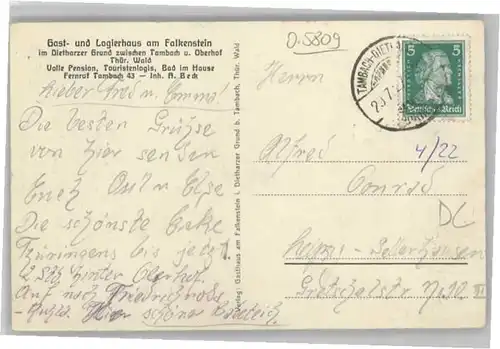 Gast- und Logierhaus am Falkenstein
im Dietharzer Grund zwischen Tambach u. Oberhof
Thür. Wald
Volle Pension, Touristenlogis, Bad im Hause
Fernruf Tambach 43 — Inh. A. Beck
Lieber Fred u. Emma!
Die besten Grüße
von hier senden
Euch Ossil u. Else
Die schönste Ecke
Thüringens bis jetzt.
2 Std. hinter Oberhof.
Auf nach Friedrichroda
Hier schöner
Verlag: Gasthaus am Falkenstein i. Dietharzer Grund b. Tambach, Thür. Wald
D.5809
TAMBACH-DIET
5 5
Deutsches Reich
Herrn
Alfred
4/22
Conrad
DC
Leipzig-Sellerhausen